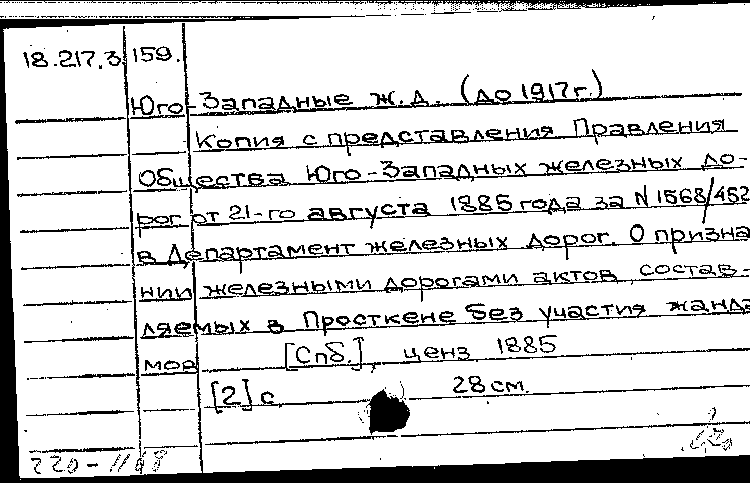 18.217.3 159.
Юго-Западные ж.д. (до 1917г.)
Копия с представления Правления
Общества Юго-Западных железных до-
рог от 21-го августа 1885 года за N 1568/452
в Департамент железных дорог. О призна
нии железными дорогами актов, состав-
ляемых в Просткене без участия жанда
мов
[Спб.], ценз. 1885
[2] с. 28 см.
220-1168